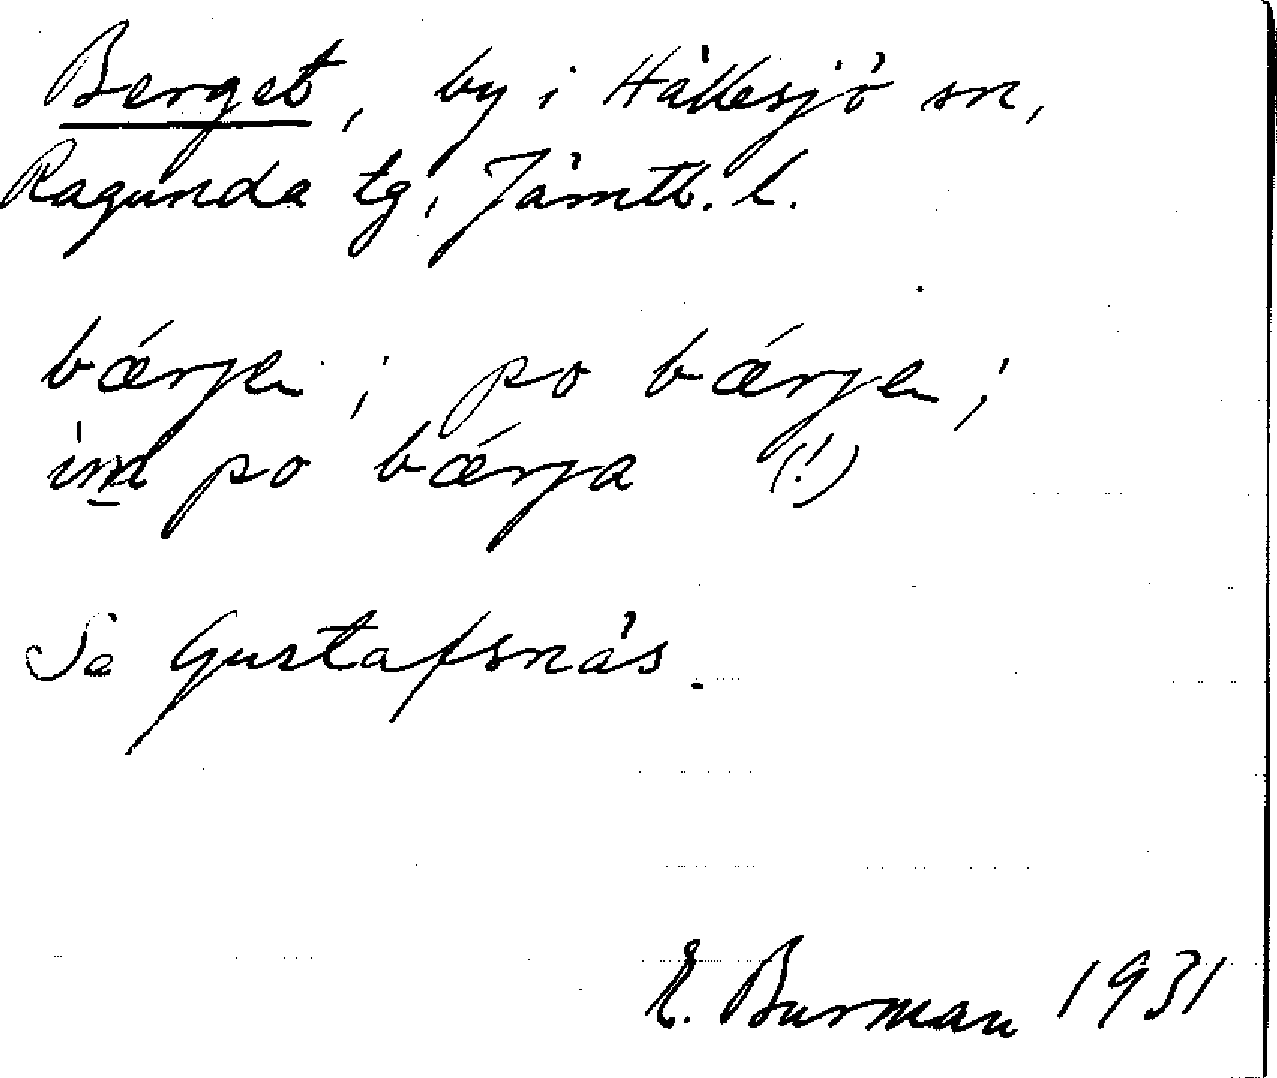 Berget, by i Hällesjö sn,
Ragunda tg, Jämtl. l.
bǽrjen; po bǽrjen;
im po bǽrja (!)
Se Gustafsnäs.
E. Burman 1931